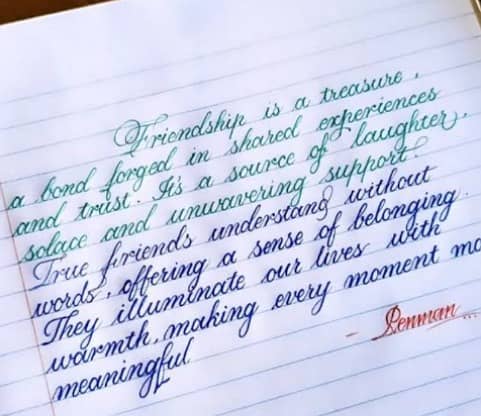 Friendship is a treasure,
a bond forged in shared experiences
and trust. It's a source of laughter,
solace and unwavering support.
True friends understand without
words, offering a sense of belonging.
They illuminate our lives with
warmth, making every moment mo
meaningful
- Penman...